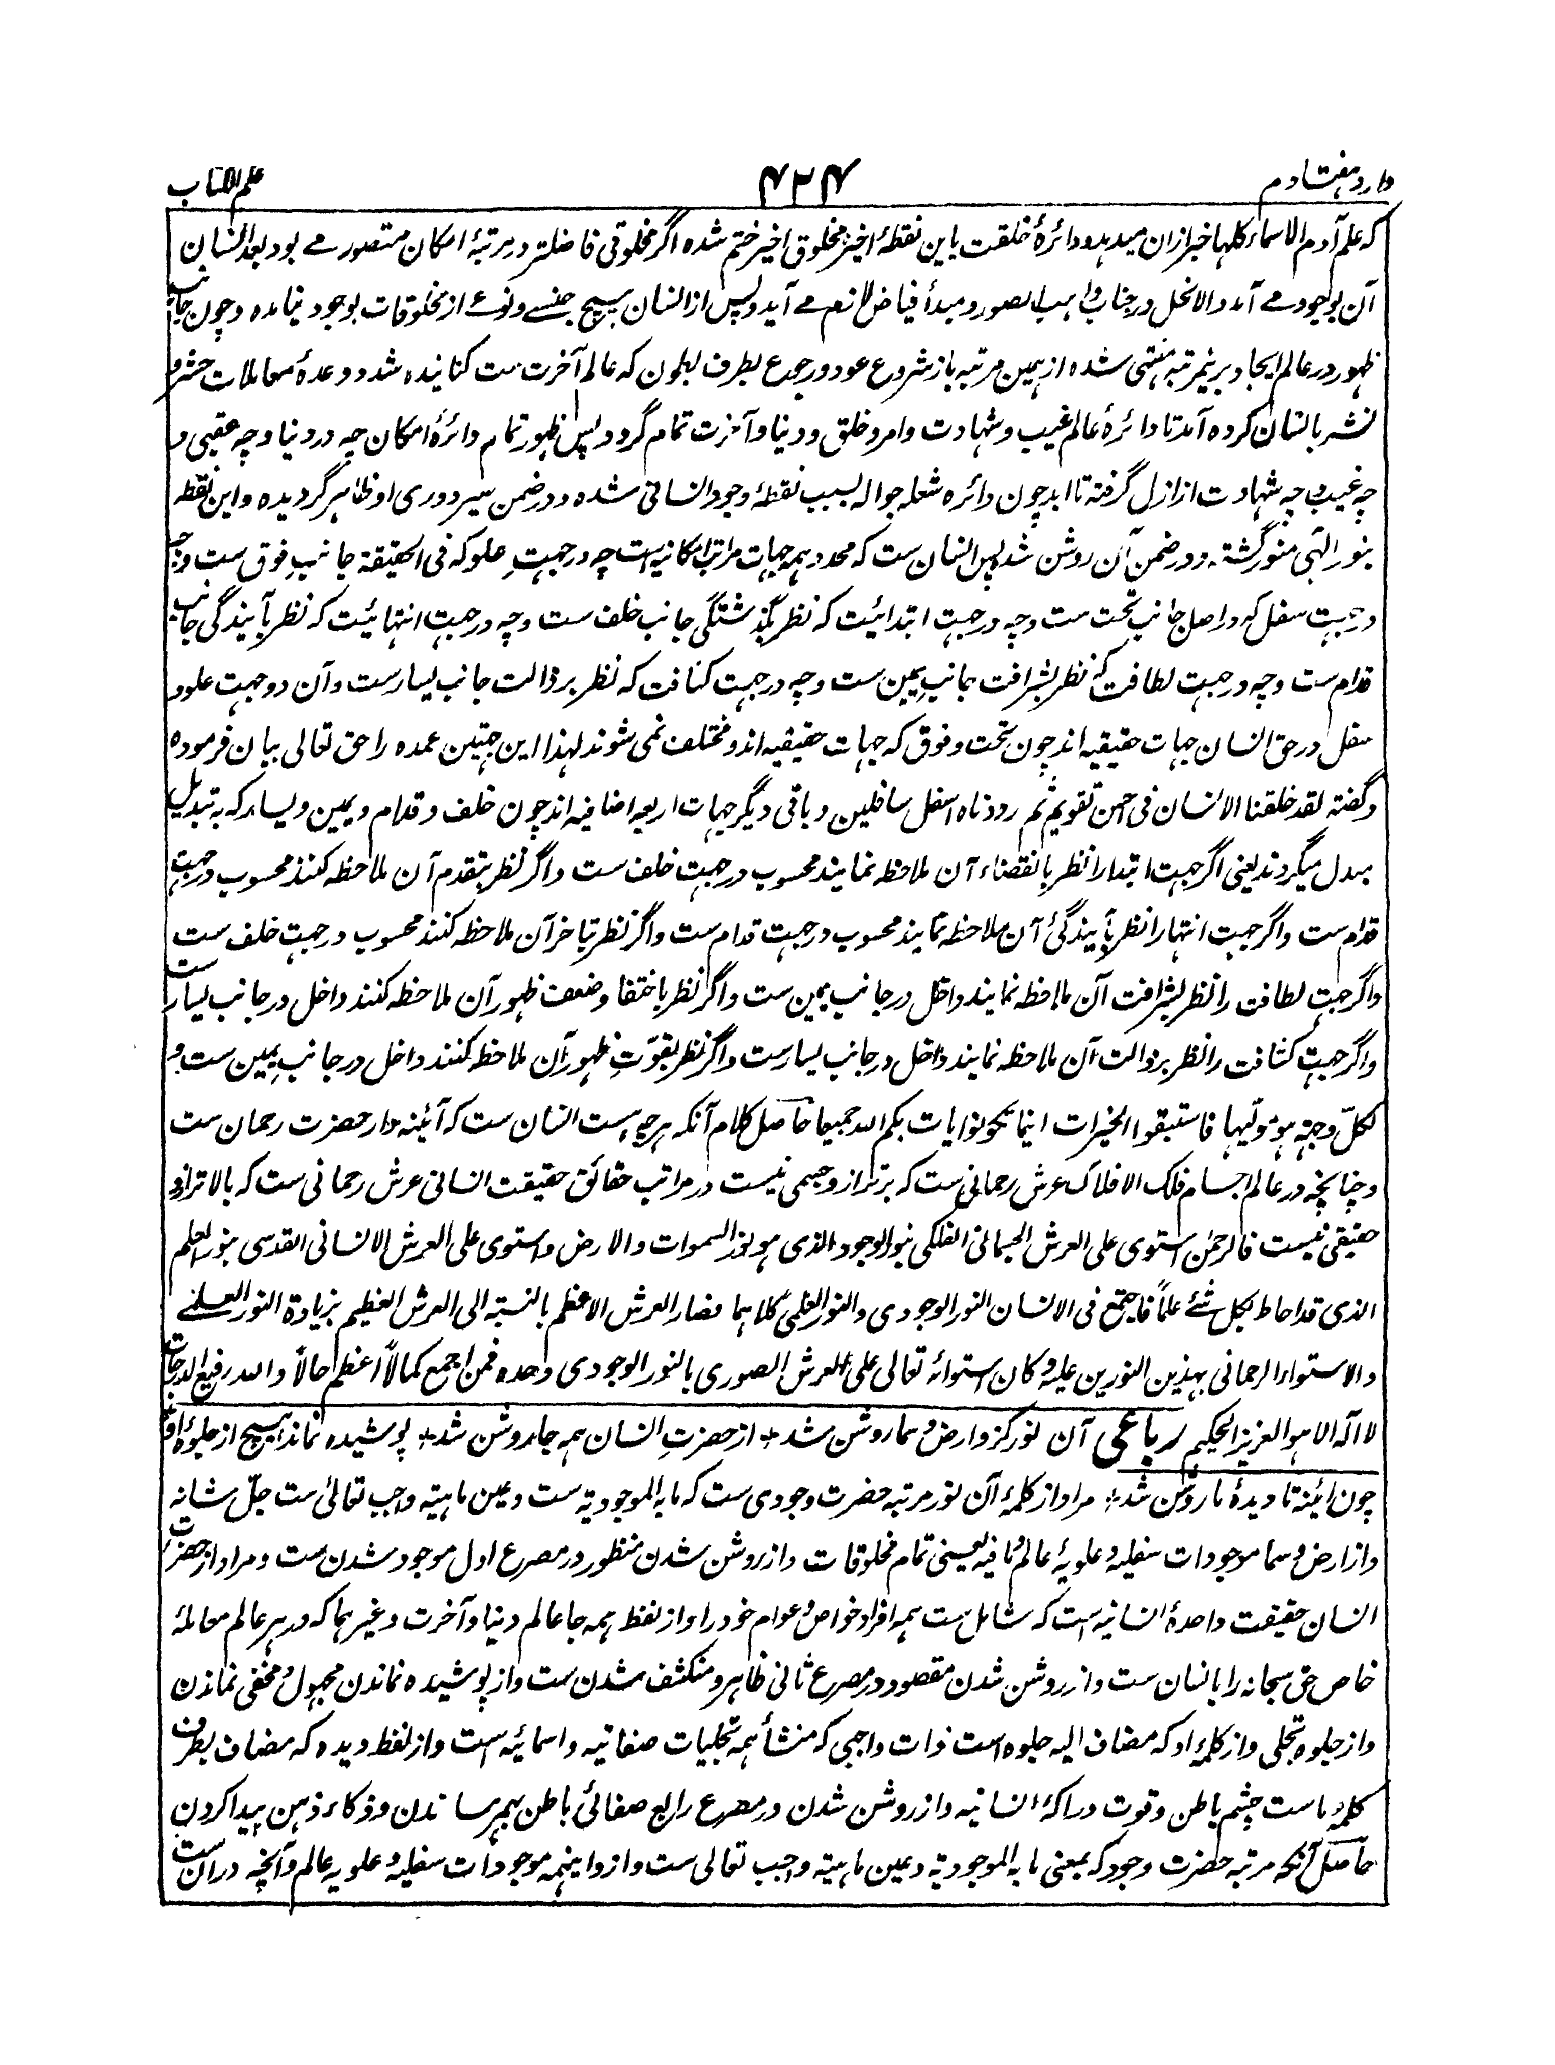 وارد هفتادم ۴۲۴ علم الکتاب
که علم آدم الاسماء کلها خبر ازان میدهد و دائرهٔ خلقت باین نقطهٔ اخیر مخلوق اخیر ختم شده اگر مخلوقی فاضلتر در مرتبهٔ امکان متصور مے بود بعد انسان
آن بوجود مے آمد والا بخل در جناب واهب الصور و مبدأ فیاض لازم مے آید و پس از انسان هیچ جنسے و نوعے از مخلوقات بوجود نیامده و چون جانب
ظهور در عالم ایجاد برین مرتبه منتهی شده از همین مرتبه باز شروع عود و رجوع بطرف بطون که عالم آخرت ست کنانیده شد و وعدهٔ معاملات حشر و
نشر بانسان کرده آمد تا دائرهٔ عالم غیب و شهادت و امر و خلق و دنیا و آخرت تمام گردد پس ظهور تمام دائرهٔ امکان چه در دنیا و چه عقبی و
چه غیب و چه شهادت از ازل گرفته تا ابد چون دائره شعله جواله بسبب نقطهٔ وجود انسانی شده و در ضمن سیر دوری او ظاهر گردیده و این نقطه
بنور الٓهی منور گشته و در ضمن آن روشن شد پس انسان ست که محدد همه جهات مراتب امکانیه است چه در جهتِ علو که فی الحقیقة جانبِ فوق ست و چه
در جهت سفل که در اصل جانب تحت ست و چه در جهت ابتدائیت که نظر بگذشتگی جانب خلف ست و چه در جهت انتهائیت که نظر بآیندگی جانب
قدام ست و چه در جهت لطافت که نظر بشرافت بجانب یمین ست و چه در جهت کثافت که نظر برذالت جانب یسار ست و آن دو جهت علو و
سفل در حق انسان جهات حقیقیه اند چون تحت و فوق که جهات حقیقیه اند و مختلف نمی شوند لهذا این جهتین عمده را حق تعالی بیان فرموده
و گفته لقد خلقنا الانسان فی احسن تقویم ثم رددناه اسفل سافلین و باقی دیگر جهات اربعه اضافیه اند چون خلف و قدام و یمین و یسار که به تبدیل
مبدل میگردند یعنی اگر جهت ابتدا را نظر بانقضاء آن ملاحظه نمایند محسوب در جهت خلف ست و اگر نظر بتقدم آن ملاحظه کنند محسوب در جهت
قدام ست و اگر جهت انتها را نظر بآیندگیٔ آن ملاحظه نمایند محسوب در جهت قدام ست و اگر نظر بتاخر آن ملاحظه کنند محسوب در جهت خلف ست
و اگر جهت لطافت را نظر بشرافت آن ملاحظه نمایند داخل در جانب یمین ست و اگر نظر باختفا و ضعف ظهور آن ملاحظه کنند داخل در جانب یسار ست
و اگر جهت کثافت را نظر برذالت آن ملاحظه نمایند داخل در جانب یسار ست و اگر نظر بقوّتِ ظهور آن ملاحظه کنند داخل در جانبِ یمین ست و
لکلّ وجهة هو مولّیها فاستبقوا الخیرات اینما تکونوا یات بکم الله جمیعا حاصل کلام آنکه هرچه است انسان ست که آئنه دار حضرت رحمان ست
و چنانچه در عالم اجسام فلک الافلاک عرش رحمانی ست که برتر از و جسمی نیست در مراتب حقائق حقیقت انسانی عرش رحمانی ست که بالاتر ازو
حقیقتی نیست فالرحمٰن استوی علی العرش الجسمانی الفلکی بنور الوجود الذی هو نور السموات والارض و استوی علی العرش الانسانی القدسی بنور العلم
الذی قد احاط بکل شئے علماً فاجتمع فی الانسان النور الوجودی والنور العلمی کلاهما فصار العرش الاعظم بالنسبة الی العرش العظیم بزیادة النور العلمے
والاستواء الرحمانی بهذین النورین علیه و کان استوائه تعالی علی العرش الصوری بالنور الوجودی وحده فمن اجمع کمالاً اعظم حالاً والله رفیع الدرجات
لا اله الا هو العزیز الحکیم رباعی آن نور کزو ارض و سما روشن شد ؞ از حضرتِ انسان همه جا روشن شد ؞ پوشیده نماند هیچ از جلوهٔ او
چون آئنه تا دیدهٔ ما روشن شد ؞ مراد از کلمهٔ آن نور مرتبه حضرت وجودی ست که ما به الموجودیة ست و عین ماهیته واجب تعالیٰ ست جلّ شانه
و از ارض و سما موجودات سفلیه و علویهٔ عالم و ما فیه یعنی تمام مخلوقات و از روشن شدن منظور در مصرع اول موجود شدن ست و مراد از حضرت
انسان حقیقت واحدهٔ انسانیه است که شامل ست همه افراد خواص و عوام خود را و از لفظ همه جا عالم دنیا و آخرت و غیرهما که در هر عالم معاملهٔ
خاص حق سبحانه را بانسان ست و از روشن شدن مقصود در مصرع ثانی ظاهر و منکشف شدن ست و از پوشیده نماندن مجهول و مخفی نماندن
و از جلوه تجلی و از کلمهٔ او که مضاف الیه جلوه است ذات واجبی که منشأ همه تجلیات صفاتیه و اسمائیه است و از لفظ دیده که مضاف بطرف
کلمهٔ ما ست چشم باطن و قوت دراکهٔ انسانیه و از روشن شدن در مصرع رابع صفائی باطن بهم رساندن و ذکاء ذهن پیدا کردن
حاصل آنکه مرتبه حضرت وجود که بمعنی ما به الموجودیة و عین ماهیته واجب تعالی ست و ازو اینهمه موجودات سفلیه و علویه عالم و آنچه دران ست